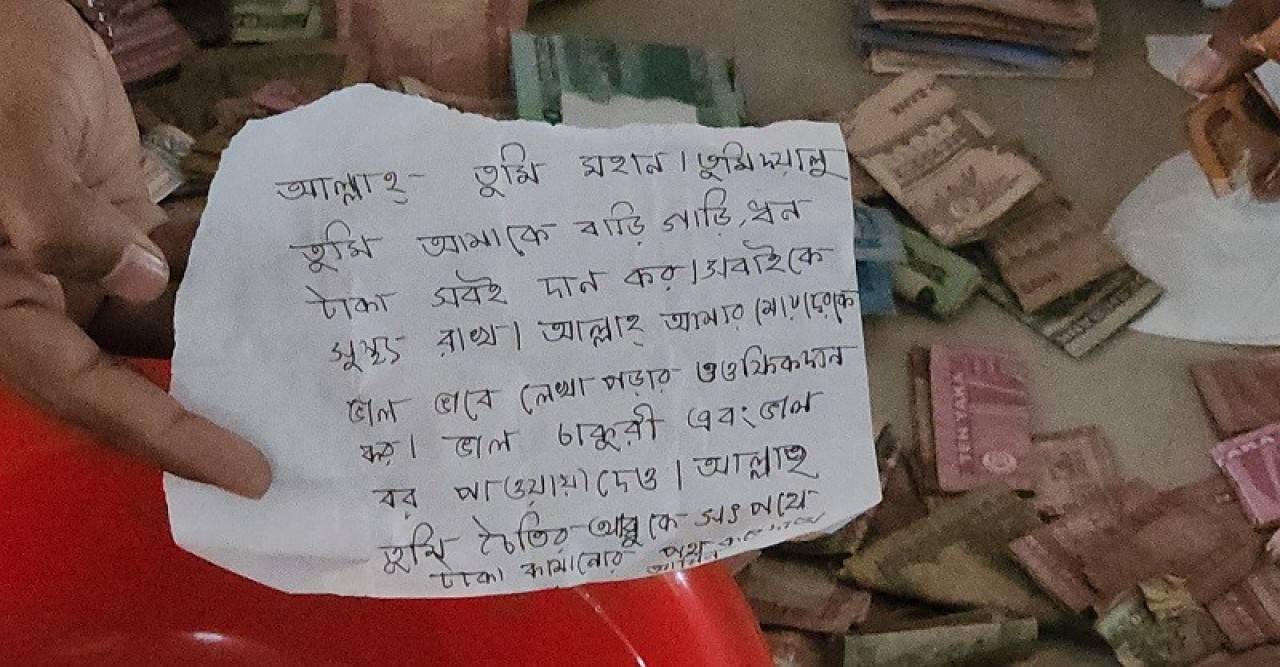 আল্লাহ্- তুমি মহান। তুমি দয়ালু
তুমি আমাকে বাড়ি গাড়ি, ধন
টাকা সবই দান কর। সবাইকে
সুস্থ রাখ। আল্লাহ্ আমার মেয়েদেরকে
ভাল ভাবে লেখা পড়ার তওফিক দান
কর। ভাল চাকুরী এবং ভাল
বর পাওয়ায়া দেও। আল্লাহ্
তুমি চৈতির আব্বুকে সৎ পথে
টাকা কামানোর পথ
আমিন
TEN TAKA